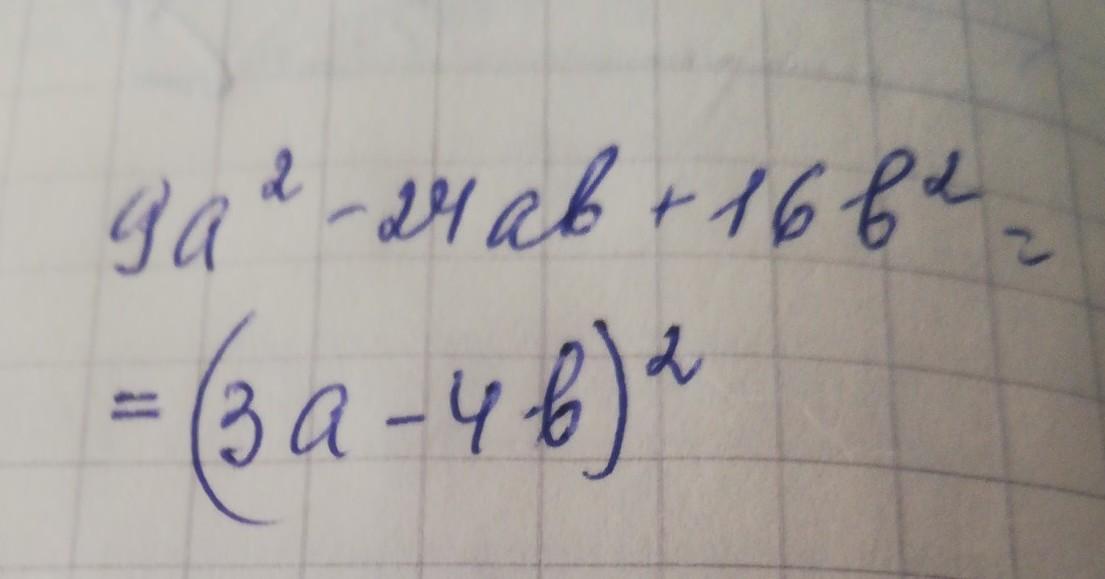 9a² - 24ab + 16b² =
= (3a - 4b)²